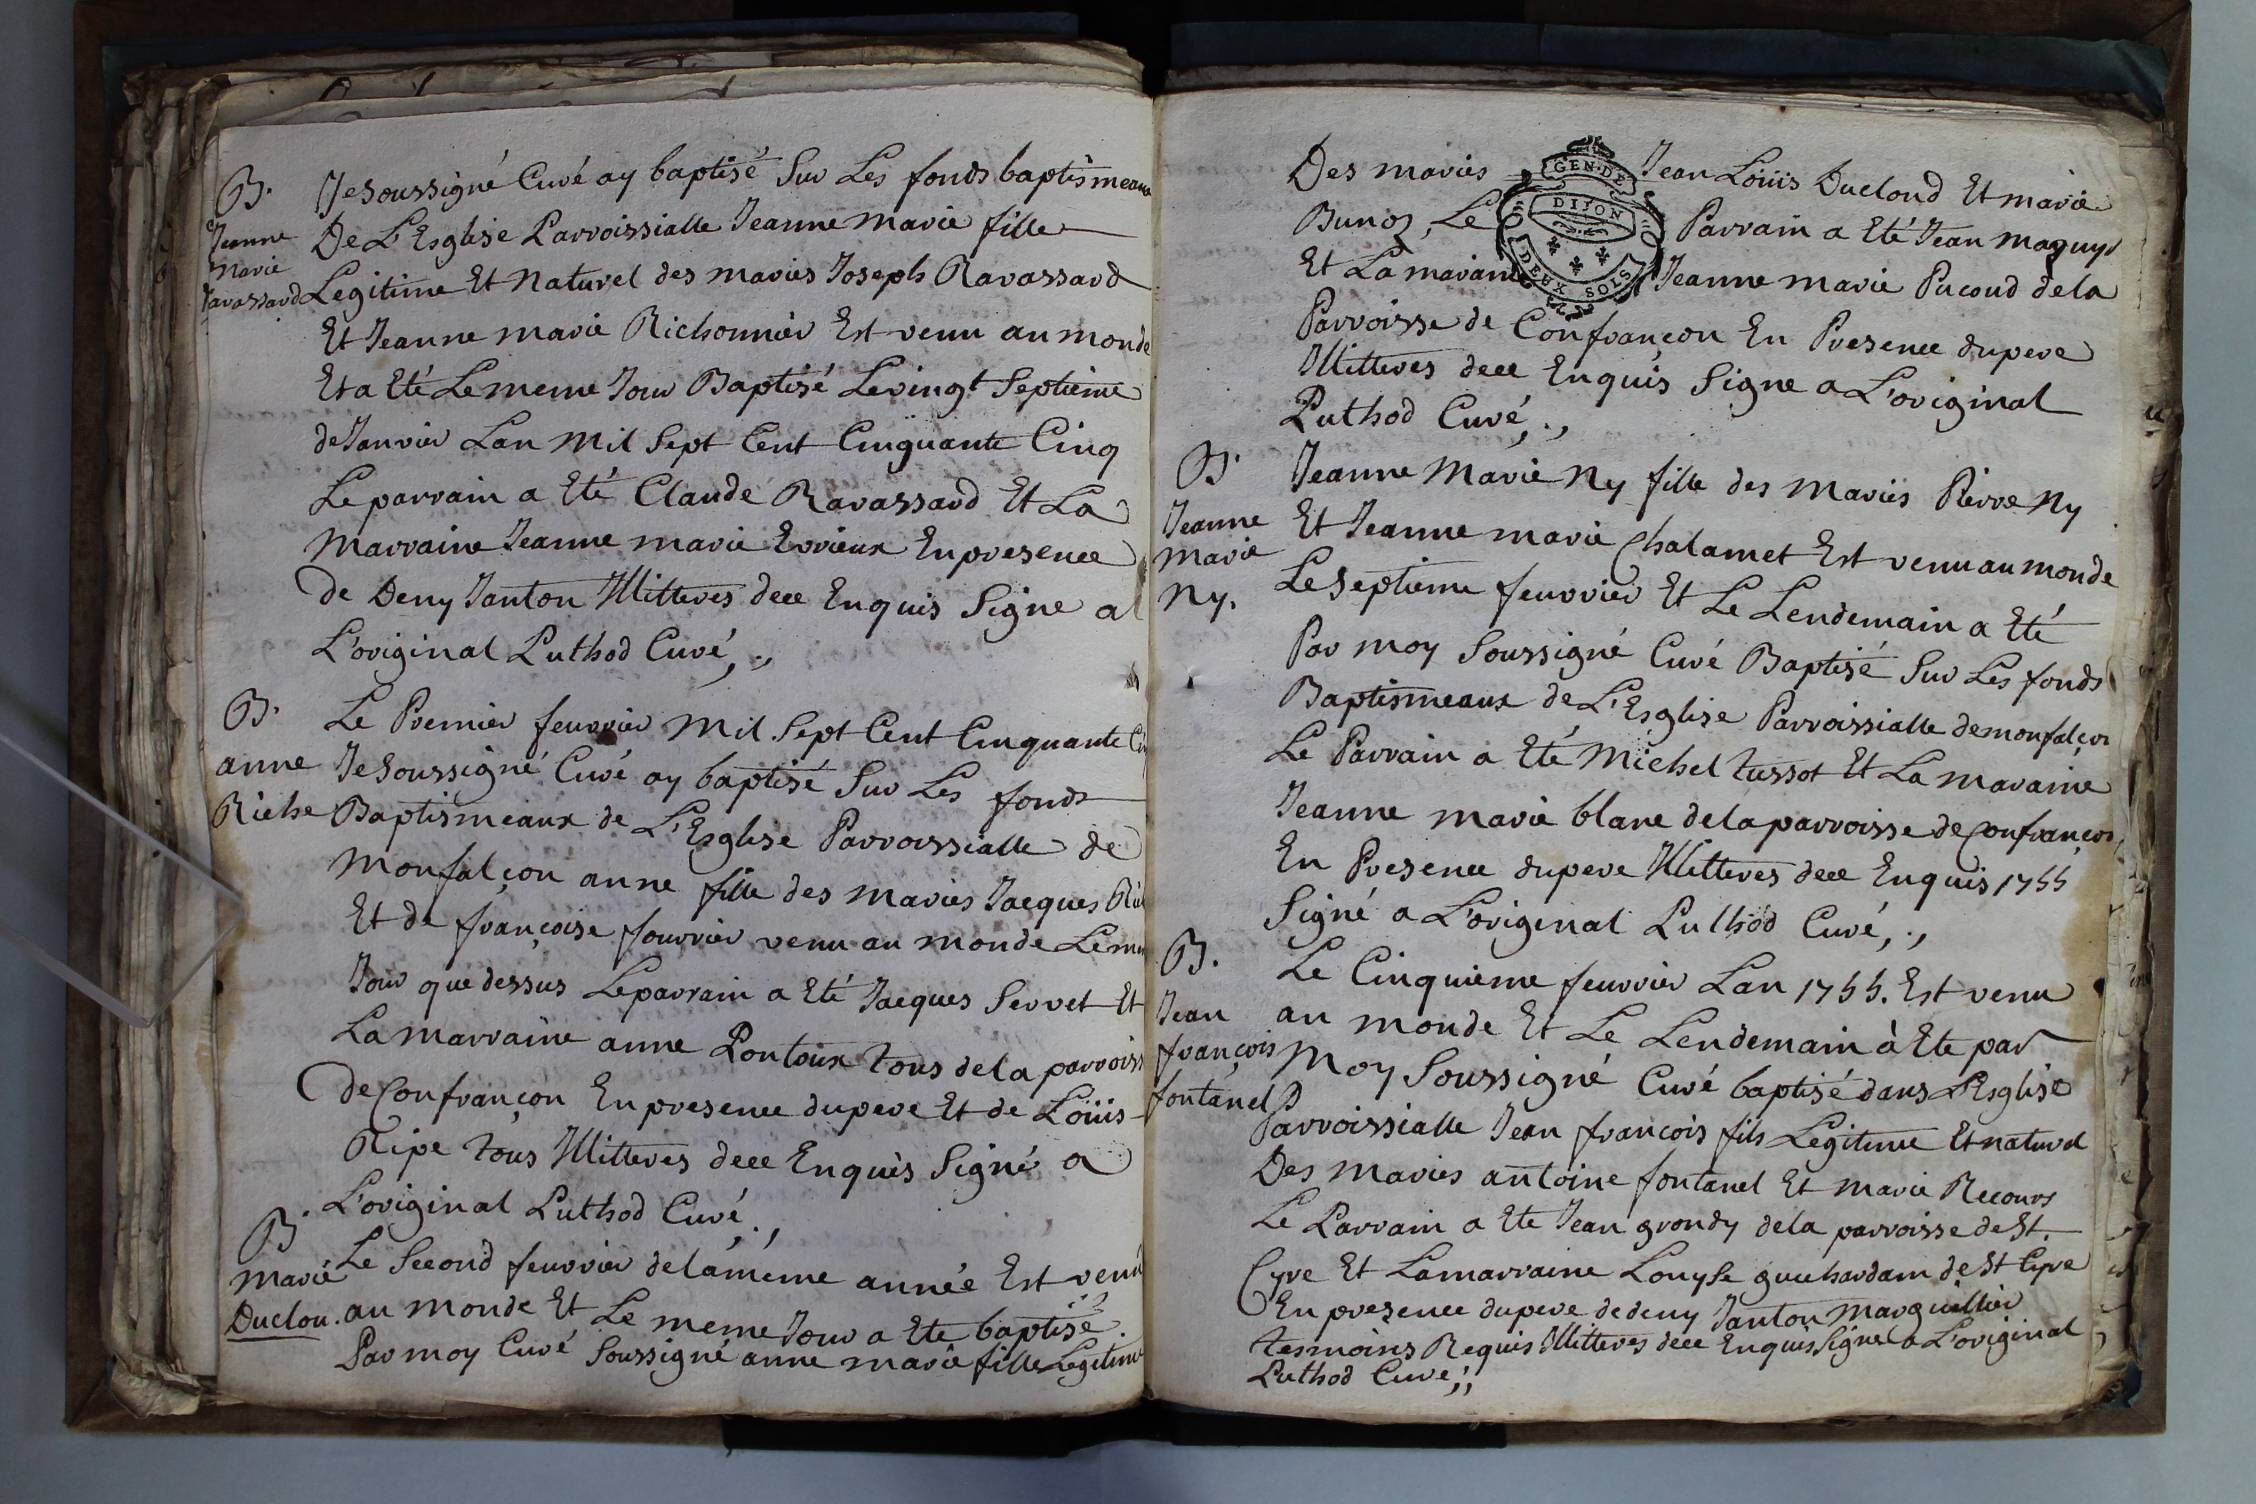 B.
Jeanne
Marie
Ravassard
Je soussigné Curé ay baptisé Sur Les fonds baptismeaux
De L'Esglise Parroissialle Jeanne Marie fille
Legitime Et Naturel des mariés Joseph Ravassard
Et Jeanne marie Richonnier Est venu au monde
Et a Eté Le meme Jour Baptisé Le vingt Septieme
de Janvier Lan Mil Sept Cent Cinquante Cinq
Le parrain a Eté Claude Ravassard Et La
Marraine Jeanne marie Evrieux En presence
de Deny Janton Illitteres dece Enquis Signe a
L'original Puthod Curé,.,
B.
anne
Riche
Le Premier feuvrier Mil Sept Cent Cinquante
Je Soussigné Curé ay baptisé Sur Les fonds
Baptismeaux de L'Esglise Parroissialle de
Monfalçon anne fille des Mariés Jacques
Et de françoise fouvrier venu au monde Le
Jour que dessus Le parrain a Eté Jacques Servet Et
La Marraine anne Pontoux tous de la parroiss
de Confrançon En presence du pere Et de Loüis
Ripe tous Illitteres dece Enquis Signé a
L'original Puthod Curé.,
B.
Marie
Duclou.
Le Second feuvrier de la méme année Est venu
au monde Et Le meme Jour a Ete baptisé
Par moy Curé Soussigné anne marie fille Legitime
Des mariés Jean Loüis Ducloud Et marie
Bunoz, Le Parrain a Eté Jean Maguys
Et La maraine Jeanne marie Pucoud de la
Parroisse de Confrançon En Presence du pere
Illitteres dece Enquis Signe a L'original
Puthod Curé,.,
GEN. DE
DIJON
DEUX SOLS
B.
Jeanne
Marie
Ny.
Jeanne Marie Ny fille des Mariés Pierre Ny
Et Jeanne marie Chalamet Est venu au monde
Le Septieme feuvrier Et Le Lendemain a Eté
Par moy Soussigné Curé Baptisé Sur Les fonds
Baptismeaux de L'Esglise Parroissialle de monfalçon
Le Parrain a Eté Michel tussot Et La maraine
Jeanne marie blanc de la parroisse de Confrançon
En Presence du pere Illitteres dece Enquis 1755
Signé a L'original Puthod Curé,.,
B.
Jean
françois
fontanel
Le Cinquieme feuvrier Lan 1755. Est venu
au monde Et Le Lendemain à Ete par
Moy Soussigné Curé baptisé dans L'Esglise
Parroissialle Jean françois fils Legitime Et naturel
Des Mariés antoine fontanel Et marie Recours
Le Parrain a Ete Jean grondy de la parroisse de St.
Cyre Et La marraine Louyse guichardam de St Cyre
En presence du pere de deny Janton Marguillier
tesmoins Requis Illitteres dece Enquis Signe a L'original
Puthod Curé;,